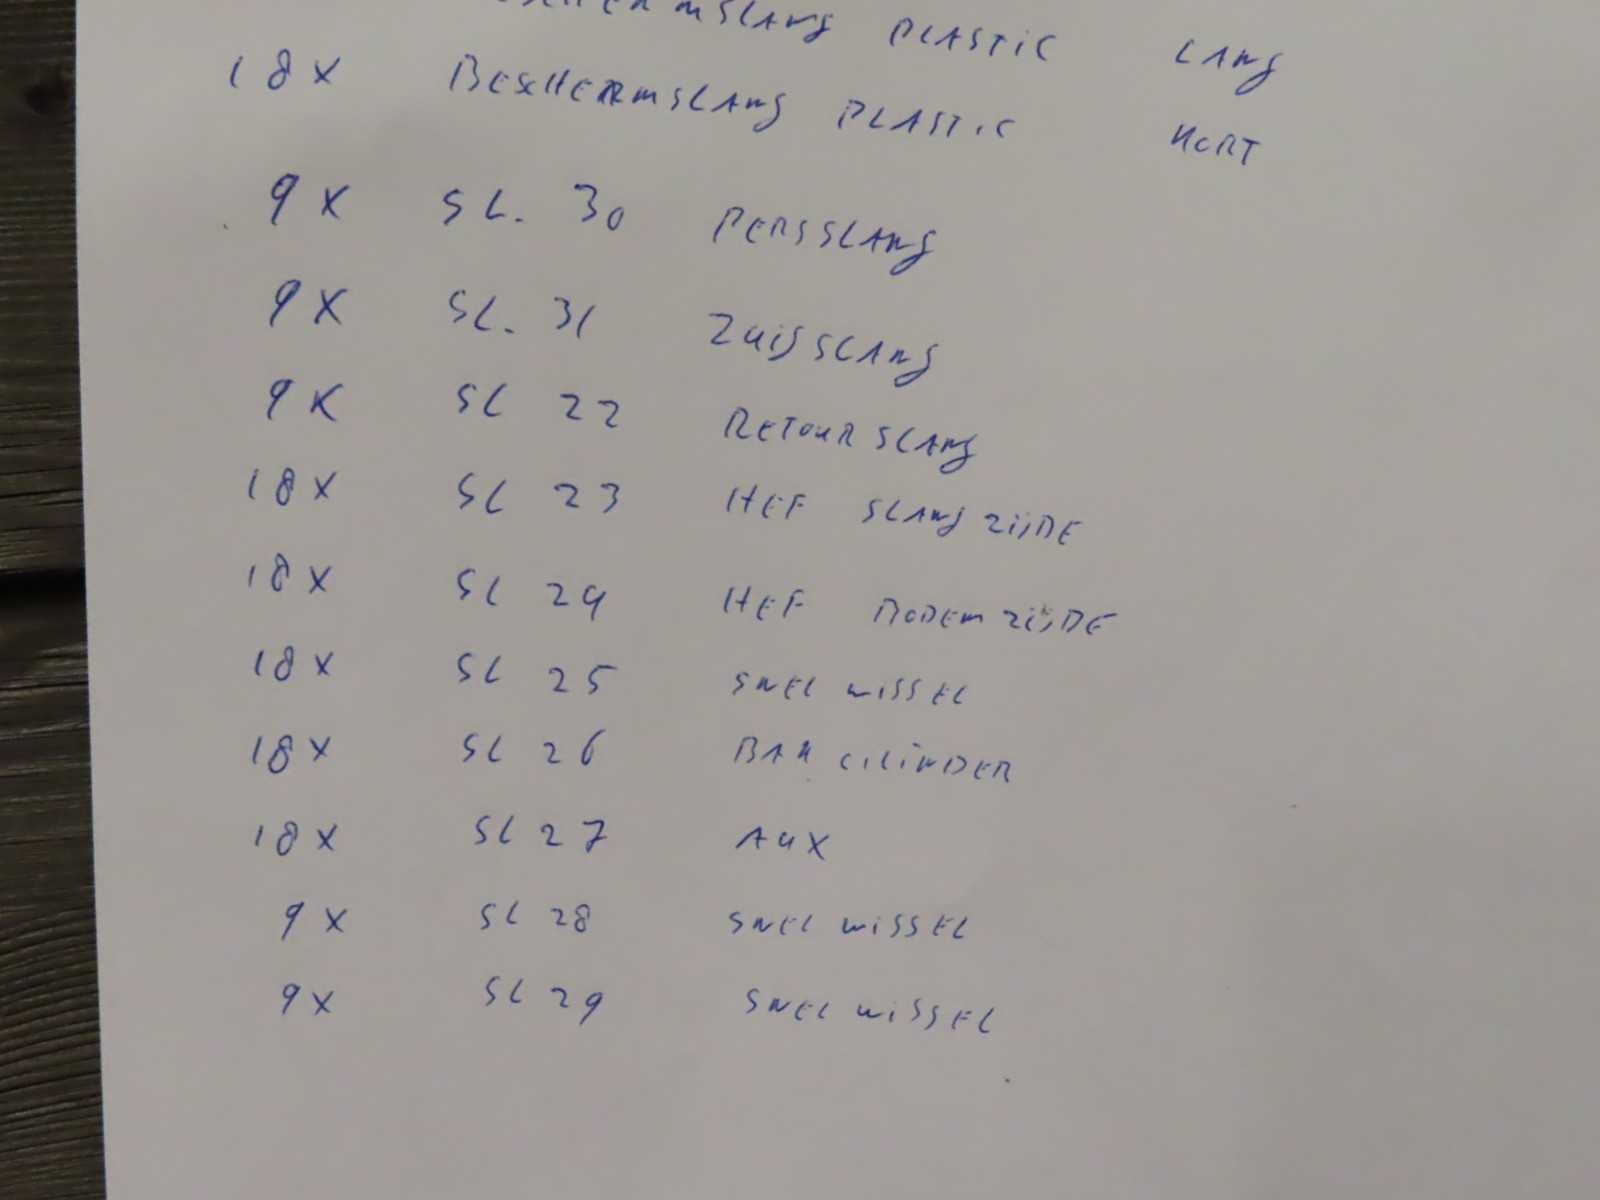 PLASTIC LANG
18X BESCHERMSLANG PLASTIC KORT
9X SL. 30 PERSSLANG
9X SL. 31 ZUIGSLANG
9X SL 22 RETOURSLANG
18X SL 23 HEF SLANGZIJDE
18X SL 24 HEF BODEMZIJDE
18X SL 25 SNELWISSEL
18X SL 26 BAKCILINDER
18X SL 27 AUX
9X SL 28 SNELWISSEL
9X SL 29 SNELWISSEL